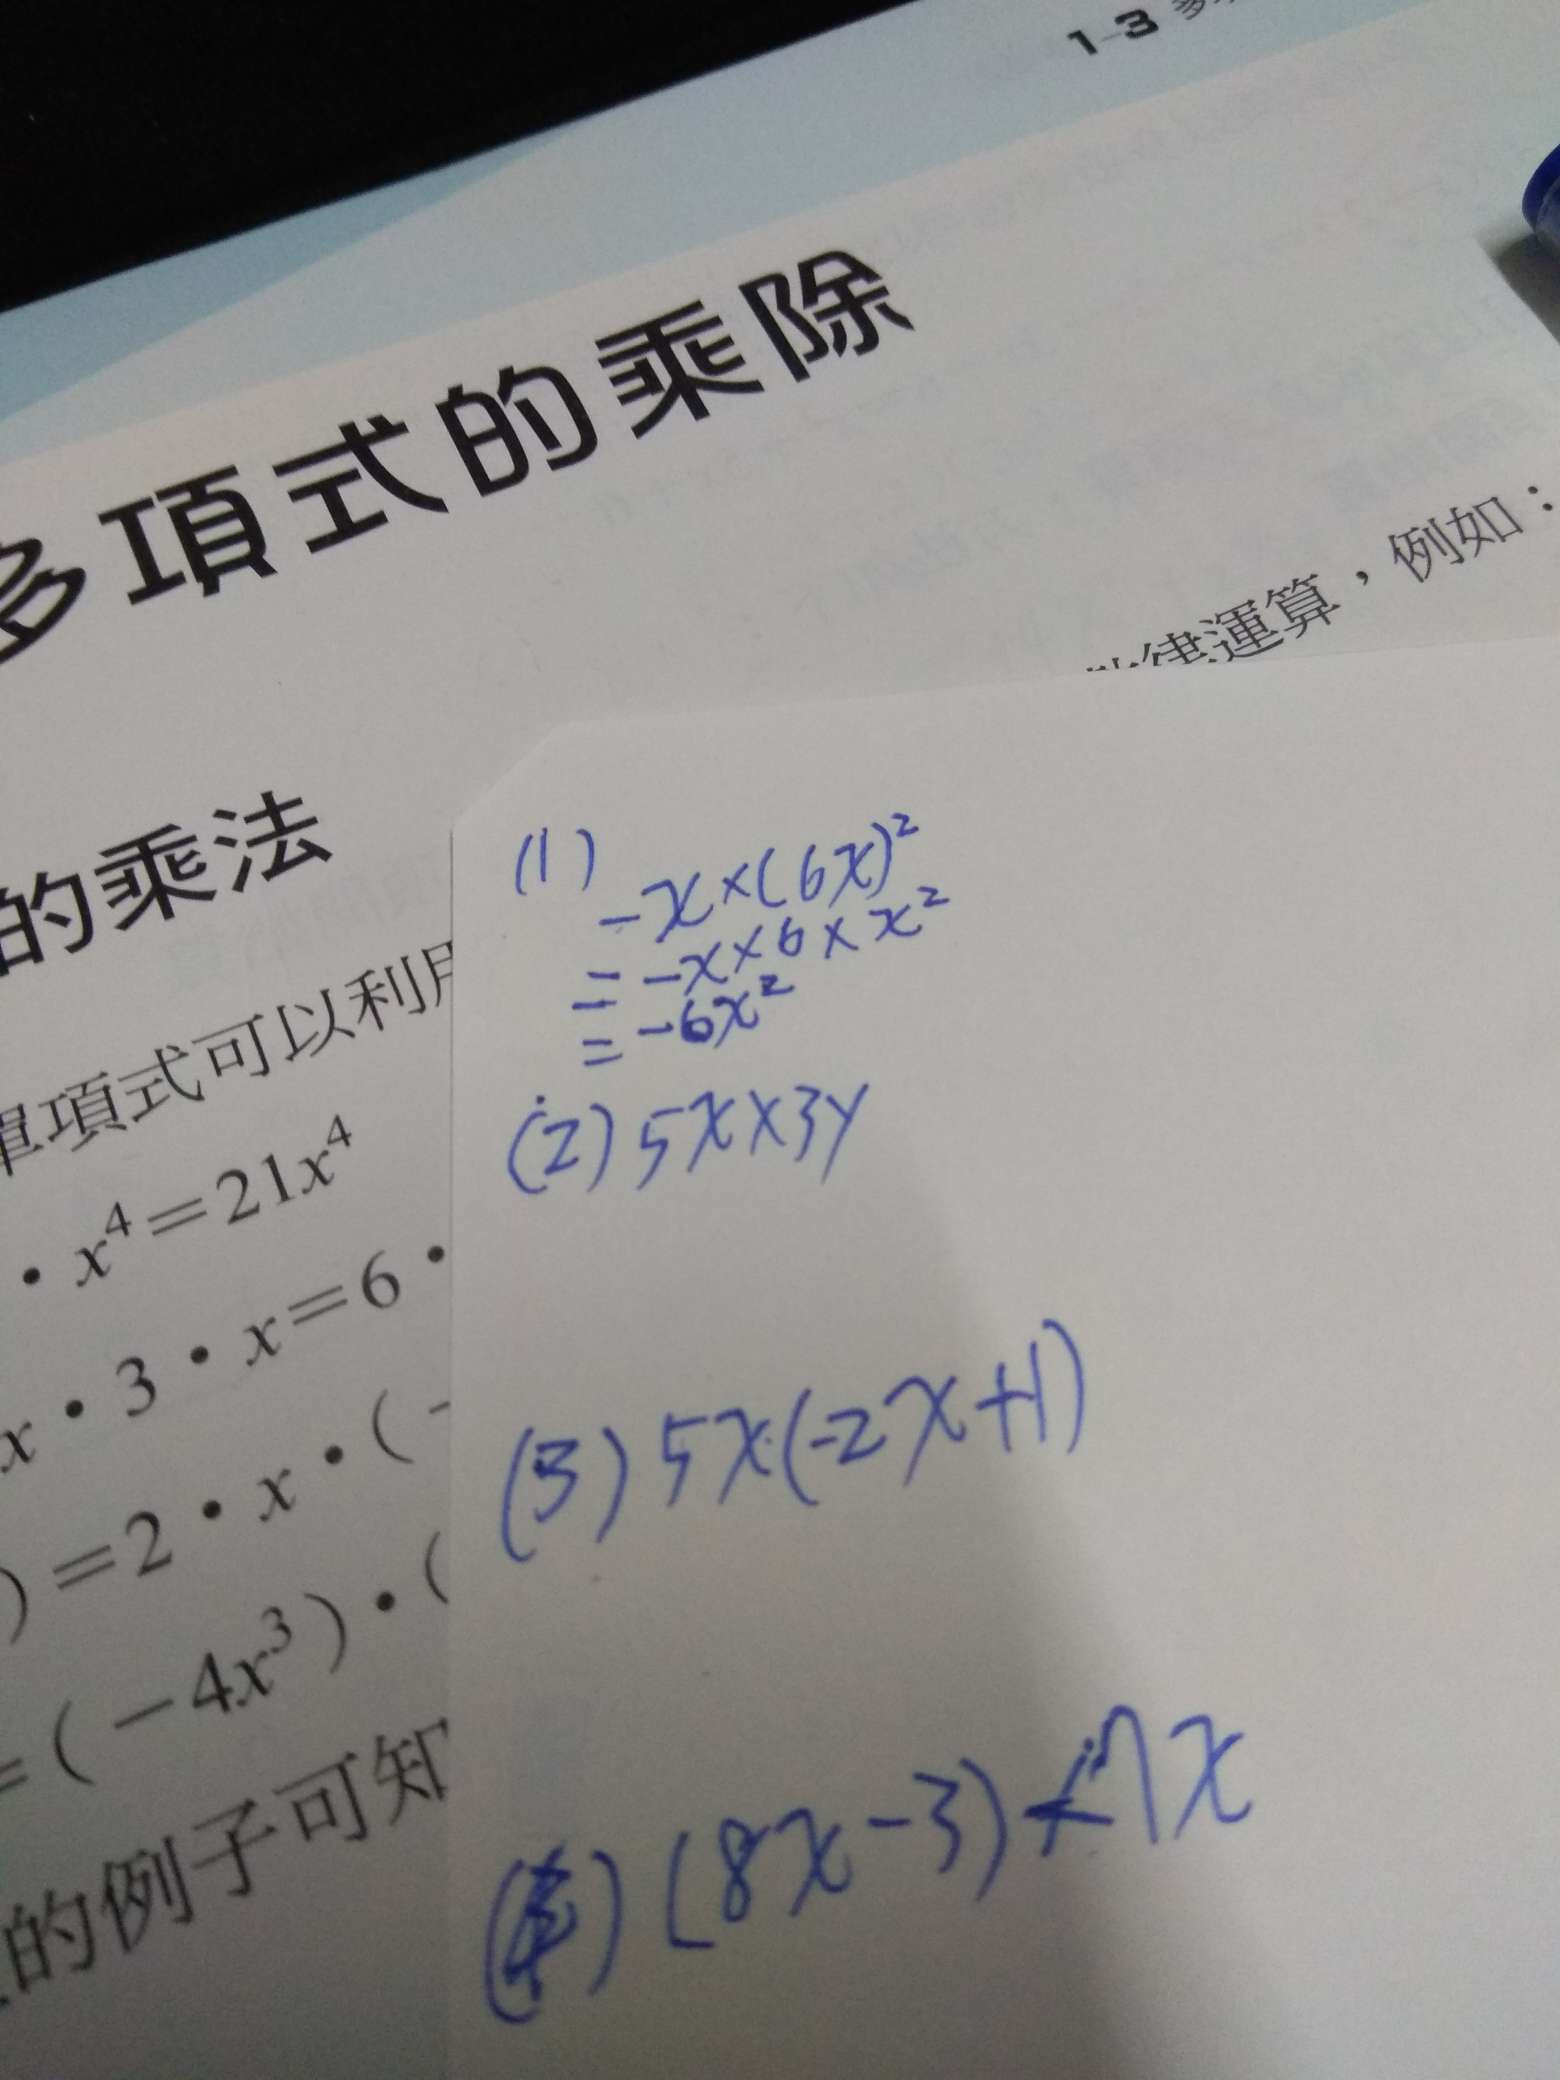 1-3
多項式的乘除
律運算，例如：
的乘法
單項式可以利用
· x⁴=21x⁴
x · 3 · x=6 ·
)=2 · x · (-
=(-4x³) · (
的例子可知
(1)
-x×(6x)²
= -x×6×x²
= -6x²
(2) 5x×3y
(3) 5x(-2x+1)
(4) (8x-3)×7x